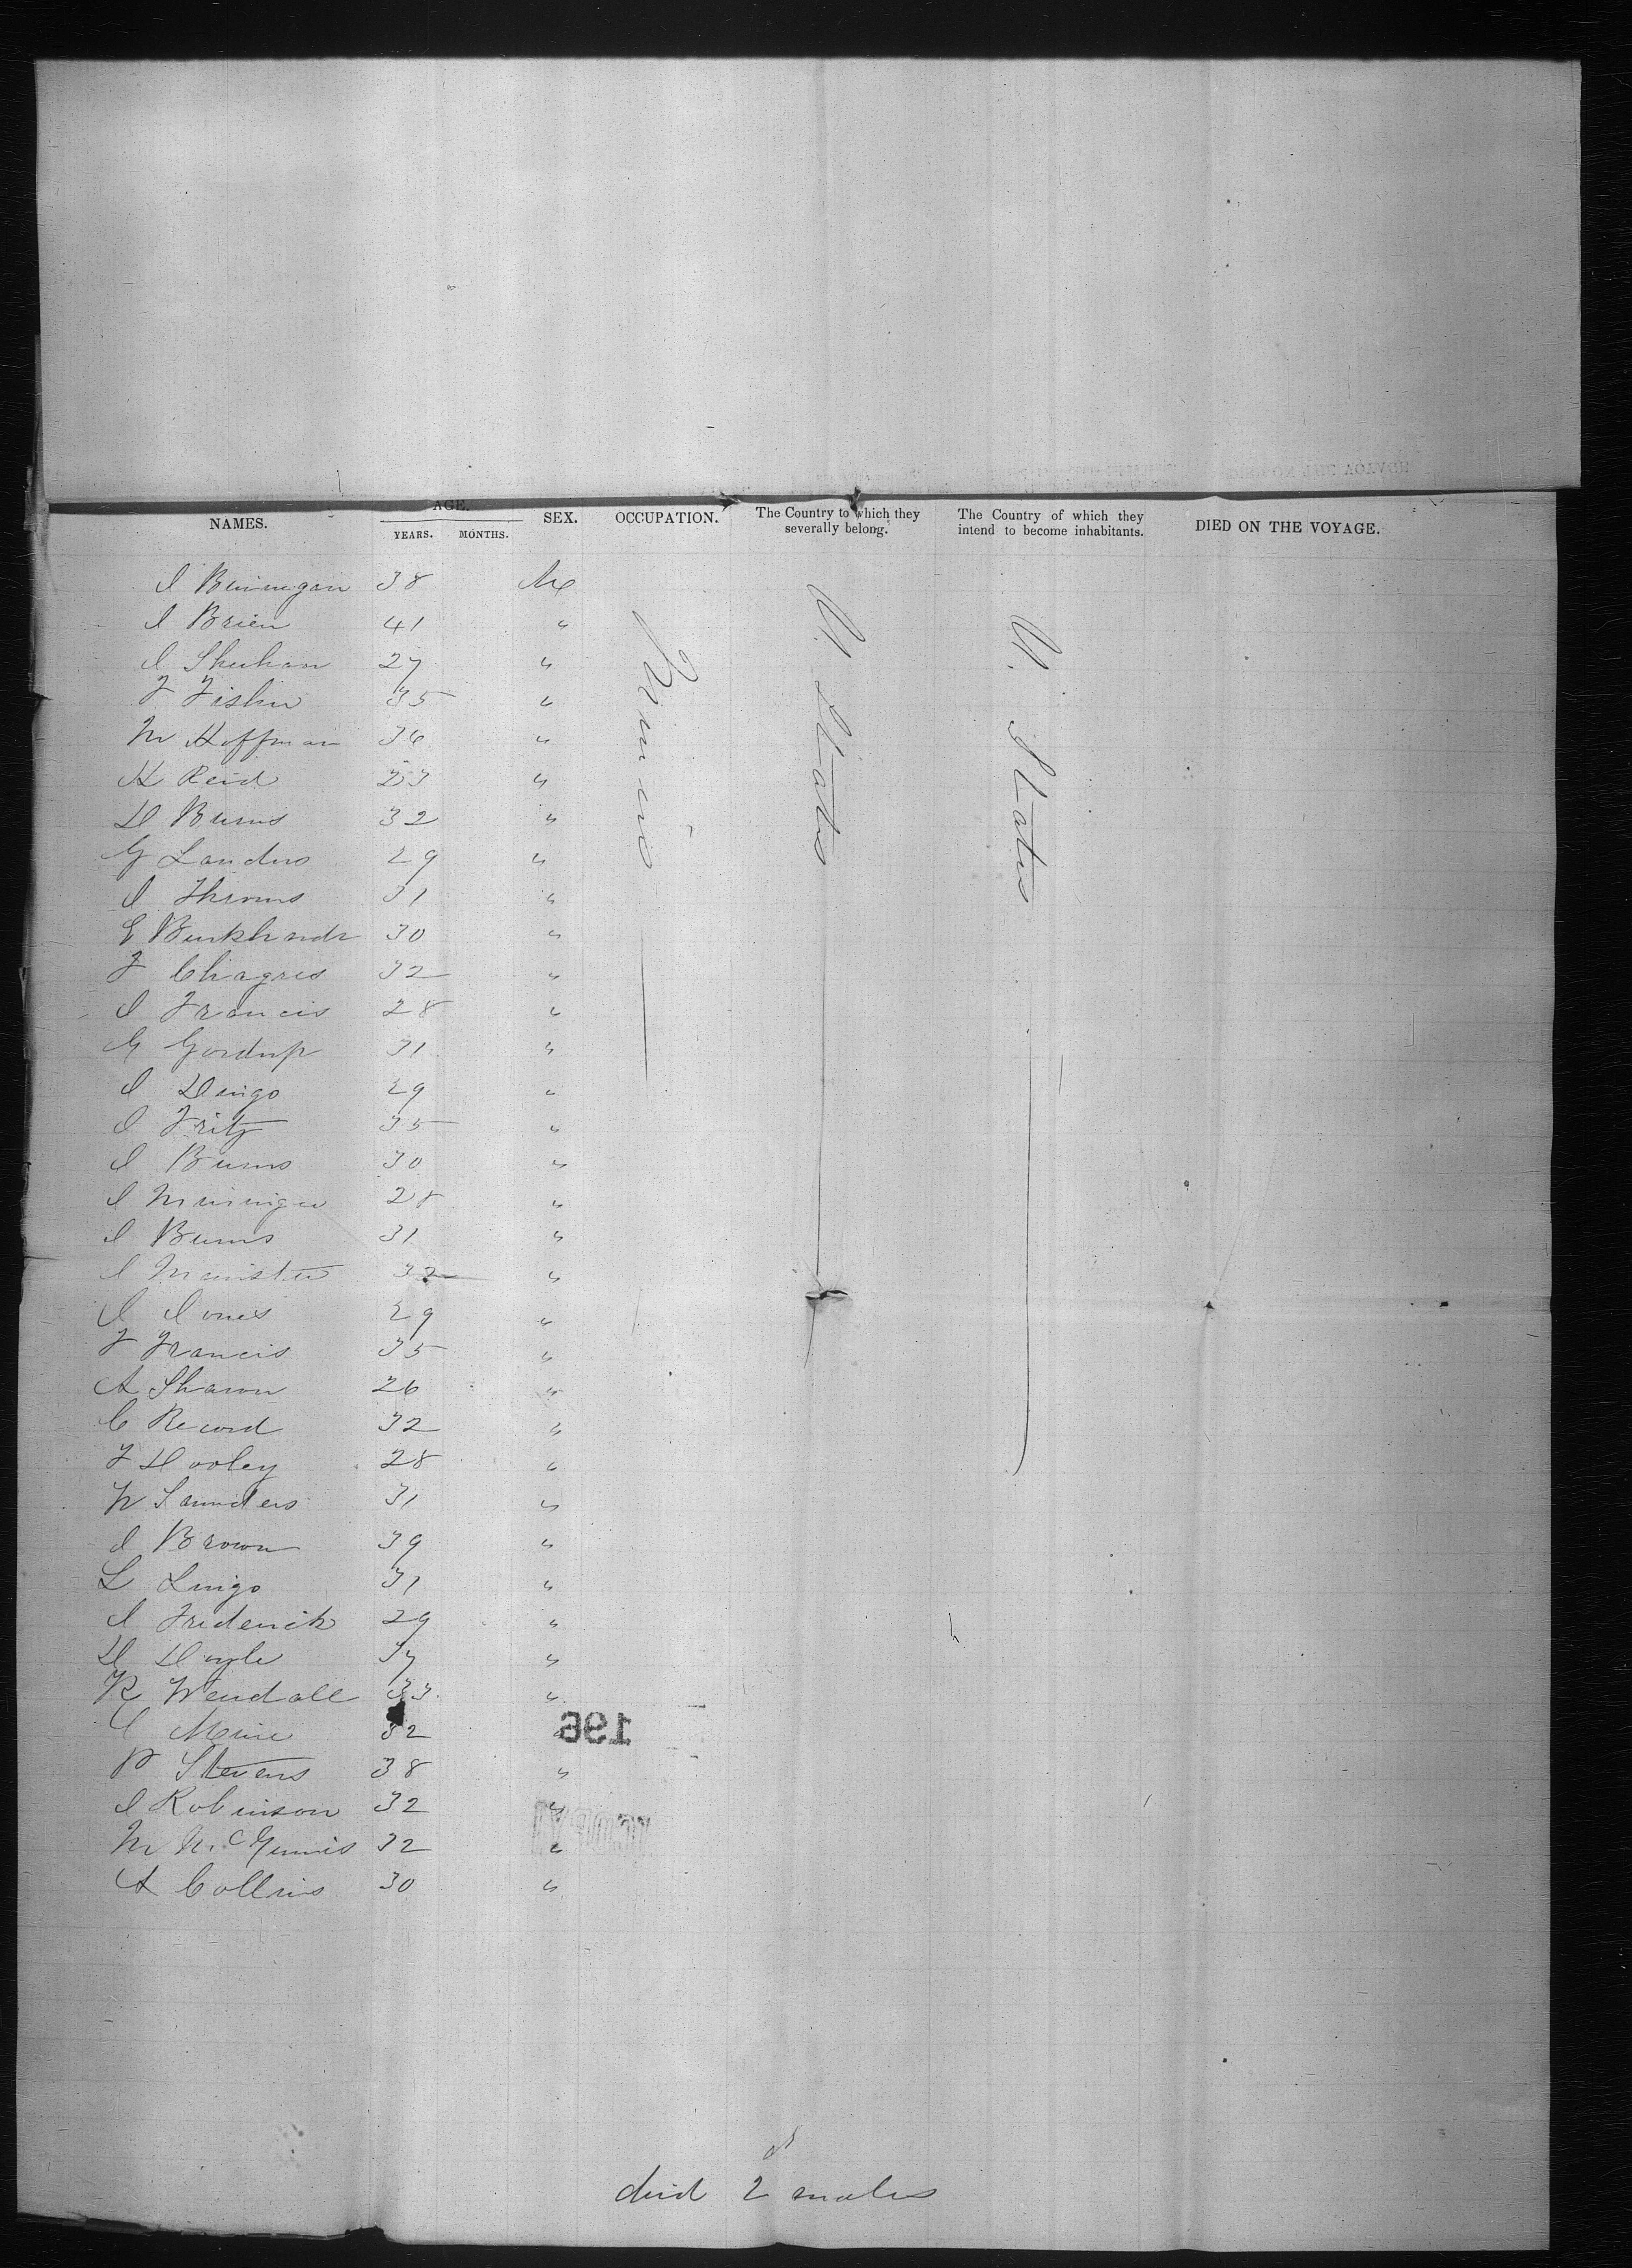 NAMES. AGE. YEARS. MONTHS. SEX. OCCUPATION. The Country to which they severally belong. The Country of which they intend to become inhabitants. DIED ON THE VOYAGE.
J 38 Me
J Brien 41 "
J Sheehan 27 "
F Fisher 35 "
M Hoffman 36 "
H Reid 23 "
D Burns 32 "
G Landers 29 "
J 31 "
E Burkhardt 30 "
F Chagres 32 "
J Francis 28 "
G 31 "
J Dingo 29 "
J Fritz 35 "
J Burns 30 "
J 28 "
J Burns 31 "
J 32 "
J Jones 29 "
F Francis 35 "
A Sharon 26 "
C Record 32 "
F Dooley 28 "
W Saunders 31 "
J Brown 39 "
L Lingo 31 "
J Frederick 29 "
D Doyle 37 "
R Wendall 33 "
C 32
P Stevens 38 "
J Robinson 32 "
M McGinnis 32 "
A Collins 30 "
U. States
U. States
196
died 2 males